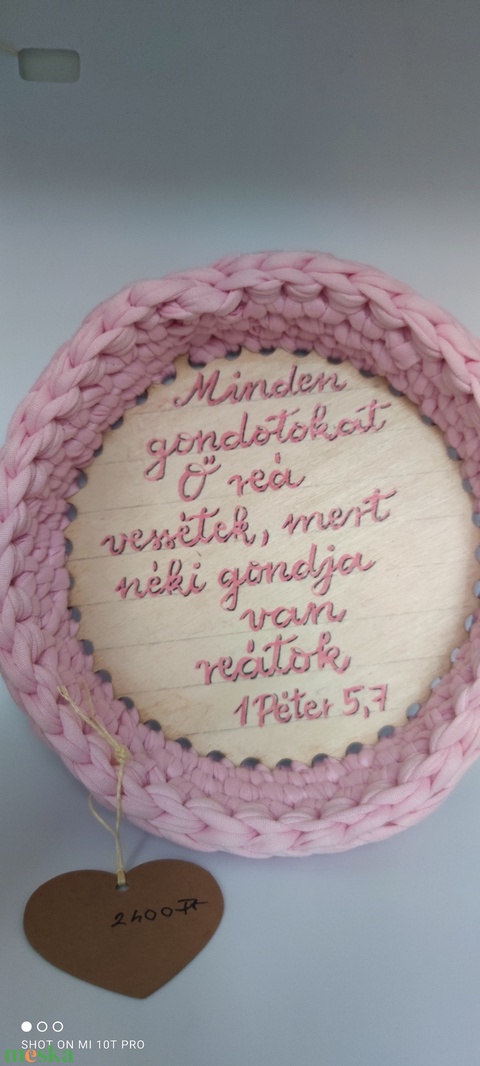 Minden
gondotokat
Ő reá
vessétek, mert
néki gondja
van
reátok
1 Péter 5,7
2400 Ft
SHOT ON MI 10T PRO
meska